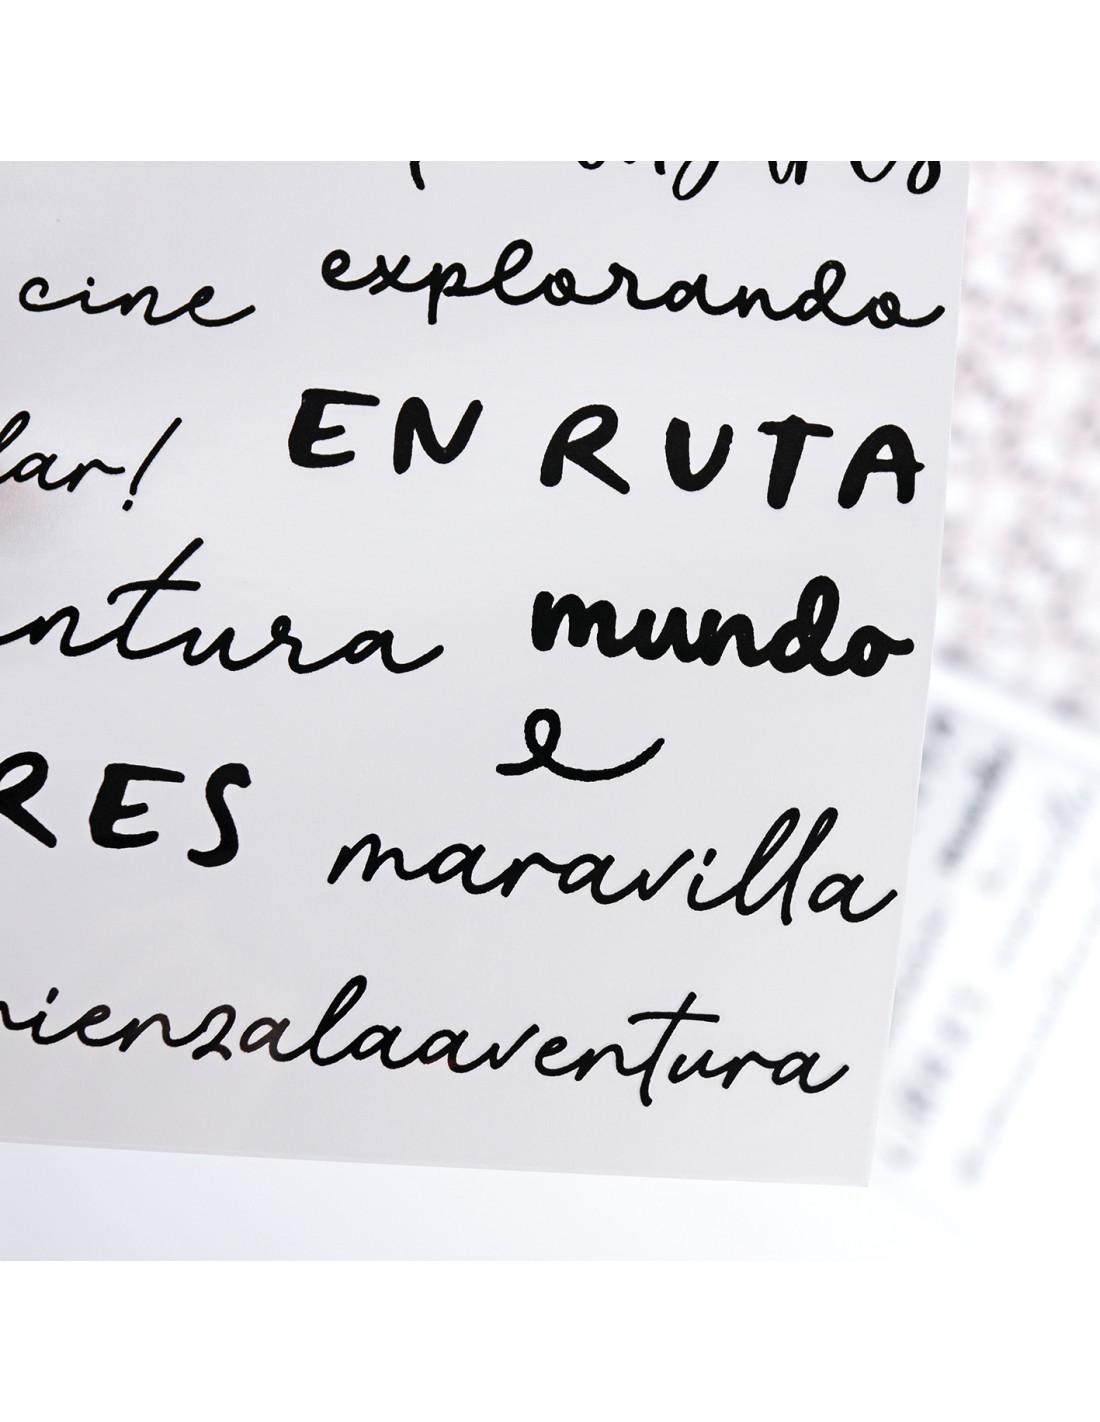 cine explorando
lar! EN RUTA
ntura mundo
e
RES maravilla
mienzalaaventura